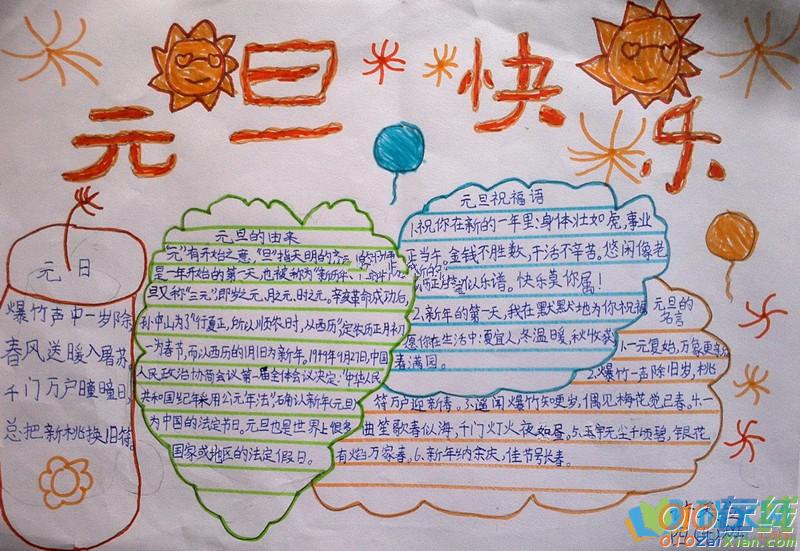 元旦快乐
元日
爆竹声中一岁除,
春风送暖入屠苏。
千门万户曈曈日,
总把新桃换旧符。
元旦的由来
"元"有开始之意,"旦"指天明的
是一年开始的第一天,也被称为"新历年"
旦又称"三元",即岁之元、月之元、时之元。辛亥革命成功后,
孙中山为了"行夏正,所以顺农时,以西历"定农历正月初
一为春节,而以西历的1月1日为新年。1949年9月27日,中国
人民政治协商会议第一届全体会议决定:"中华人民
共和国纪年采用公元年法",确认新年(元旦)
为中国的法定节日。元旦也是世界上很多
国家或地区的法定假日。
元旦祝福语
1.祝你在新的一年里:身体壮如虎,事业
正当午。金钱不胜数,干活不辛苦。悠闲像老
乐谱。快乐莫你属!
2、新年的第一天,我在默默地为你祝福
愿你在生活中:夏宜人,冬温暖,秋收获
春满园。
元旦的
名言
1.一元复始,万象更
2.爆竹一声除旧岁,桃
符万户迎新春。3.遥闻爆竹知更岁,偶见梅花觉已春。4.一
曲笙歌春似海,千门灯火夜如昼。5.玉宇无尘千顷碧,银花
有焰万家春。6、新年纳余庆,佳节号长春。
OjO在线
OjOZaiXian.com